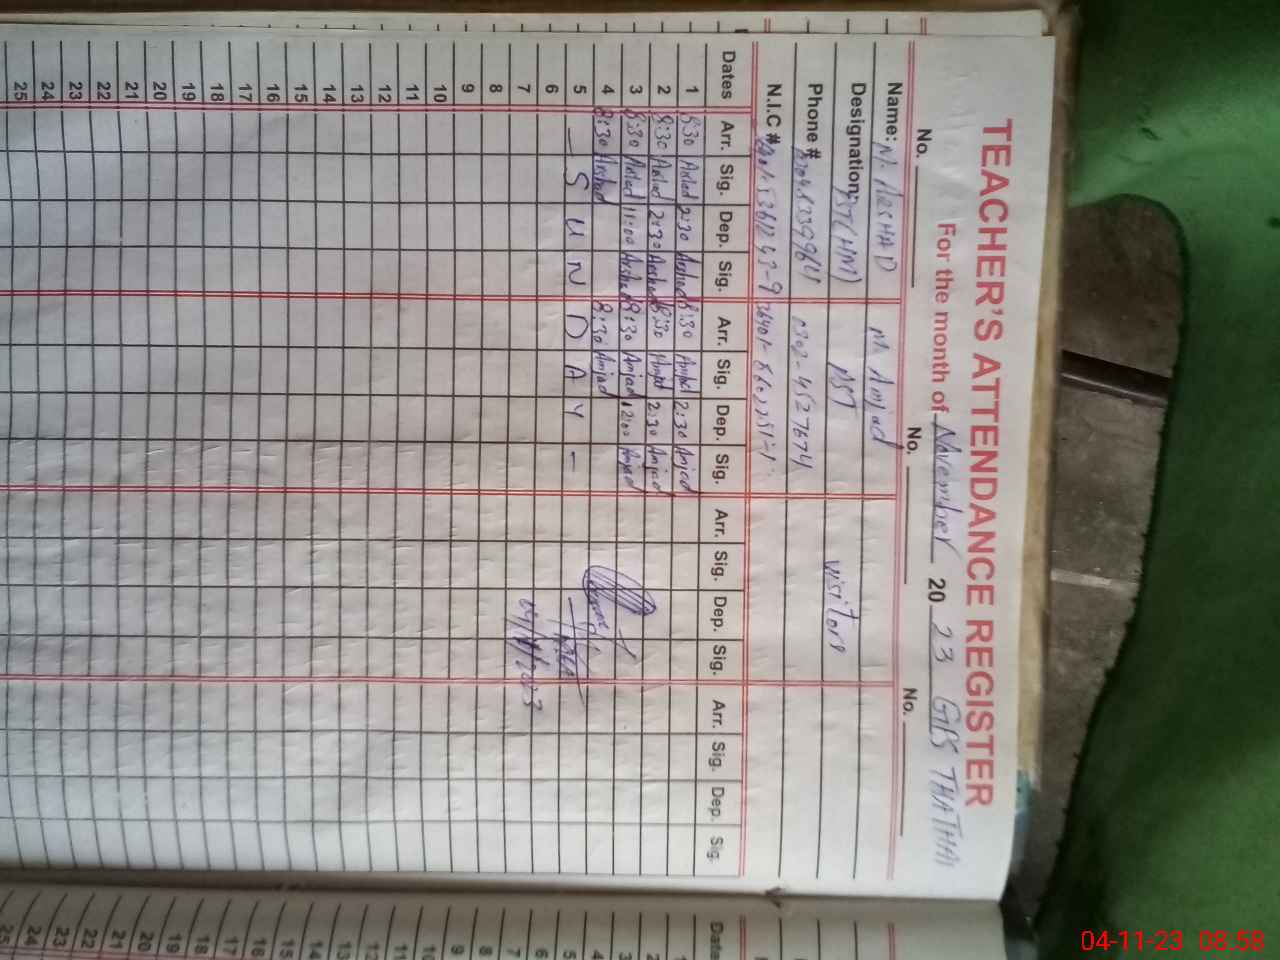 TEACHER'S ATTENDANCE REGISTER
For the month of November 20 23 GPS THATHAI
No. No. No.
Name: M. ARSHAD M. Amjad
Designation: PST (HM) PST Visitors
Phone # 0302-4527674
N.I.C #
Dates Arr. Sig. Dep. Sig. Arr. Sig. Dep. Sig. Arr. Sig. Dep. Sig. Arr. Sig. Dep. Sig.
1 8:30 Arshad 2:30 Arshad 8:30 Amjad 2:30 Amjad
2 8:30 Arshad 2:30 Arshad 8:30 Amjad 2:30 Amjad
3 8:30 Arshad 11:00 Arshad 8:30 Amjad 12:00 Amjad
4 8:30 Arshad 8:30 Amjad
5 — S U N D A Y -
6
7 04/11/2023
8
9
10
11
12
13
14
15
16
17
18
19
20
21
22
23
24
25
Dates
1
2
3
4
5
6
7
8
9
10
11
12
13
14
15
16
17
18
19
20
21
22
23
24
25
04-11-23 08:58